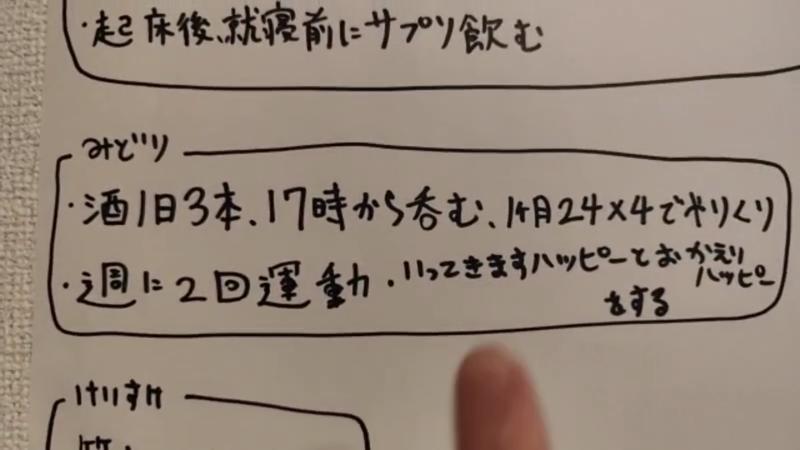 ・起床後、就寝前にサプリ飲む
みどり
・酒1日3本、17時から呑む、1ヶ月24×4でやりくり
・週に2回運動・いってきますハッピーとおかえりハッピーをする
けいすけ